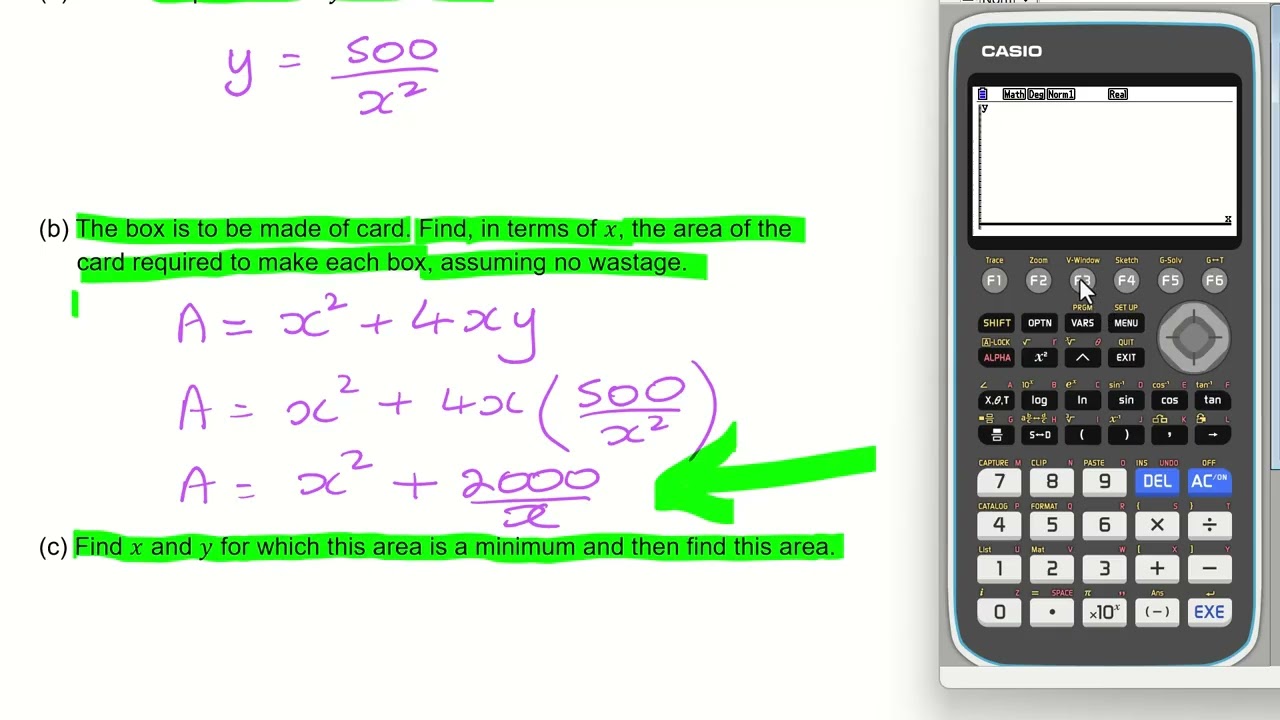 y = 500/x²
(b) The box is to be made of card. Find, in terms of x, the area of the
card required to make each box, assuming no wastage.
A = x² + 4xy
A = x² + 4x(500/x²)
A = x² + 2000/x
(c) Find x and y for which this area is a minimum and then find this area.
CASIO
Math Deg Norm1 Real
y
x
Trace Zoom V-Window Sketch G-Solv G↔T
F1 F2 F3 F4 F5 F6
PRGM SET UP
SHIFT OPTN VARS MENU
A-LOCK √ r ∛ θ QUIT
ALPHA x² ^ EXIT
∠ A 10ˣ B eˣ C sin⁻¹ D cos⁻¹ E tan⁻¹ F
X,θ,T log ln sin cos tan
G H I x⁻¹ J K L
S↔D ( ) , →
CAPTURE M CLIP N PASTE O INS UNDO OFF
7 8 9 DEL AC/ON
CATALOG P FORMAT Q R { S } T
4 5 6 × ÷
List U Mat V W [ X ] Y
1 2 3 + −
i Z = SPACE π " Ans ↵
0 • ×10ˣ (−) EXE